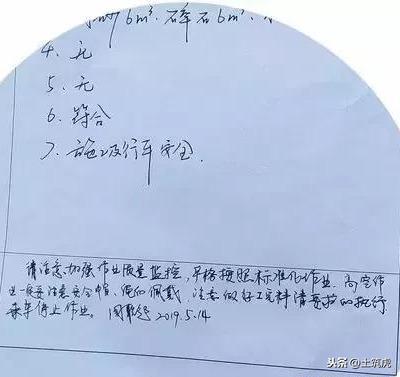 6m³. 碎石6m³.
4、无
5、无
6、符合
7、施工及行车安全.
请注意加强作业质量监控,严格按照标准化作业、高空作
业一定要注意安全帽、佩戴 注意做好工完料清 的执行
停止作业。 2019.5.14
头条 @土筑虎